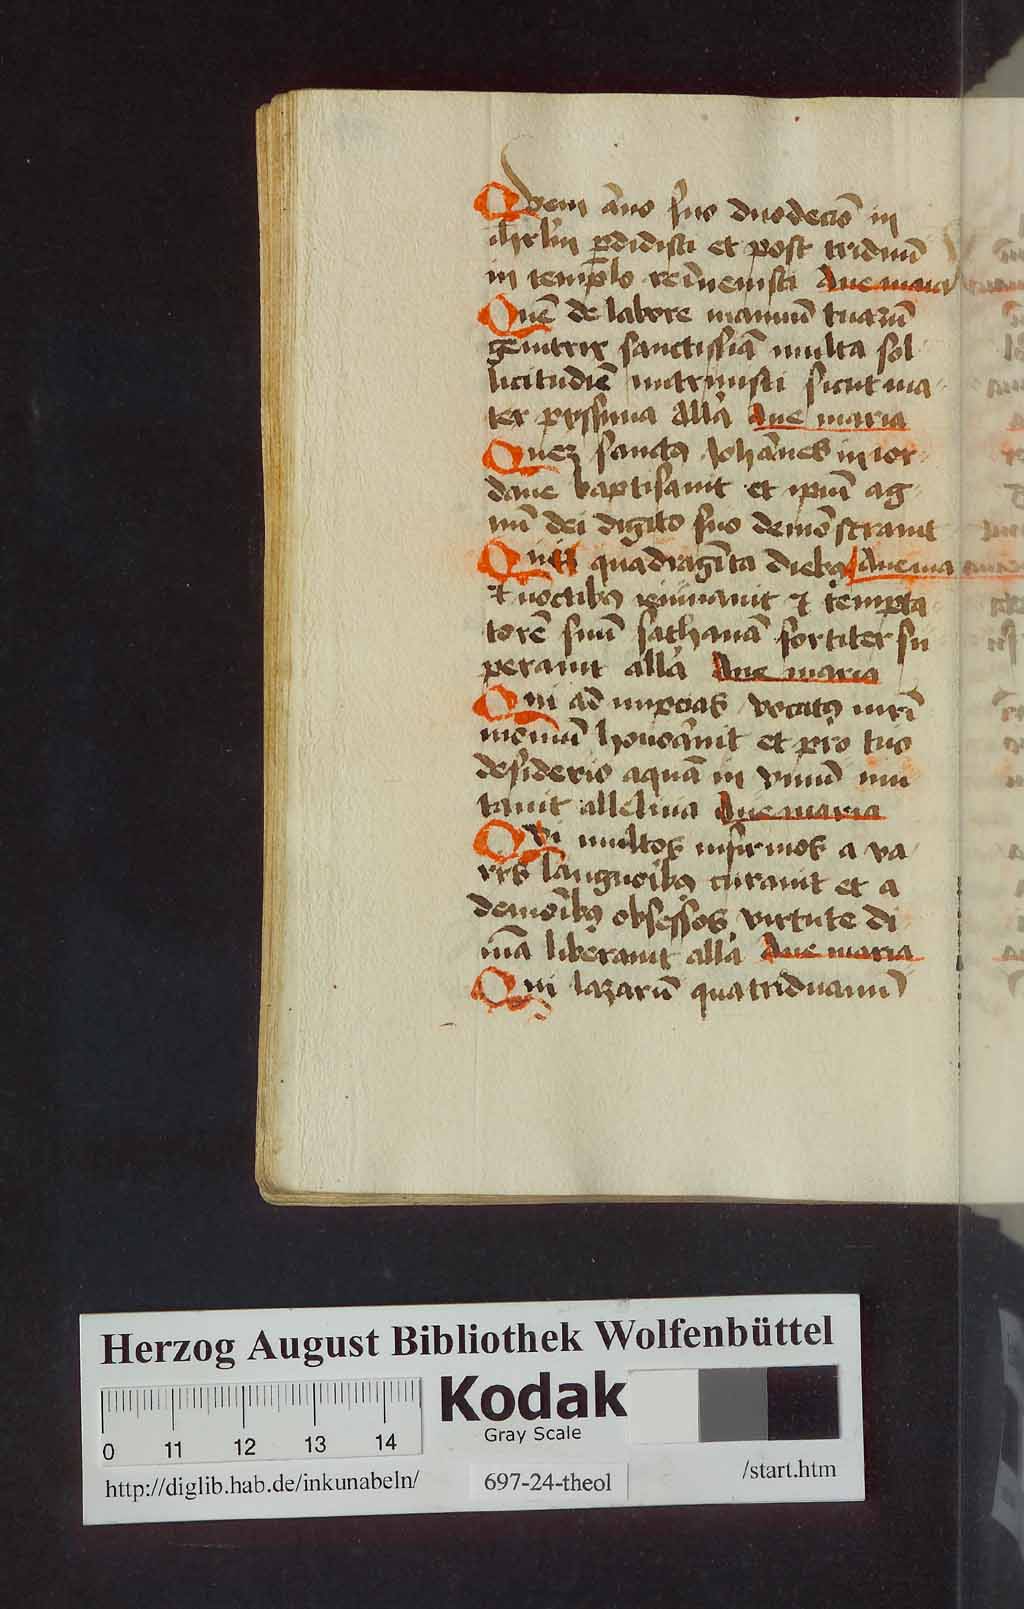 Quem āno suo duodecīo in
ihrlm ꝑdidisti et post triduū
in templo reīuenisti Aue maria
Quē de labore manuum tuarū
genitrix sanctissīā multa sol
licitudīē nutriuisti sicut ma
ter pyssima alla Aue maria
Quez sanctꝯ Iohānes in ior
dane baptisauit et ipm̄ ag
nū dei digito suo demōstrauit
Qui quadragīta diebꝯ Aue ma
et noctibꝯ ieiunauit ⁊ tempta
torē suū sathanā fortiter su
perauit alla Aue maria
Qui ad nupcias vocatꝯ mr̄i
moniū honorauit et pro tuo
desiderio aquā in vinū mu
tauit alleluia Aue maria
Qvi multos infirmos a va
rys languoribꝯ curauit et a
demōibꝯ obsessos virtute di
uīa liberauit alla Aue maria
Qui lazarū quatriduanū
Herzog August Bibliothek Wolfenbüttel
0 11 12 13 14
Kodak
Gray Scale
http://diglib.hab.de/inkunabeln/
697-24-theol
/start.htm